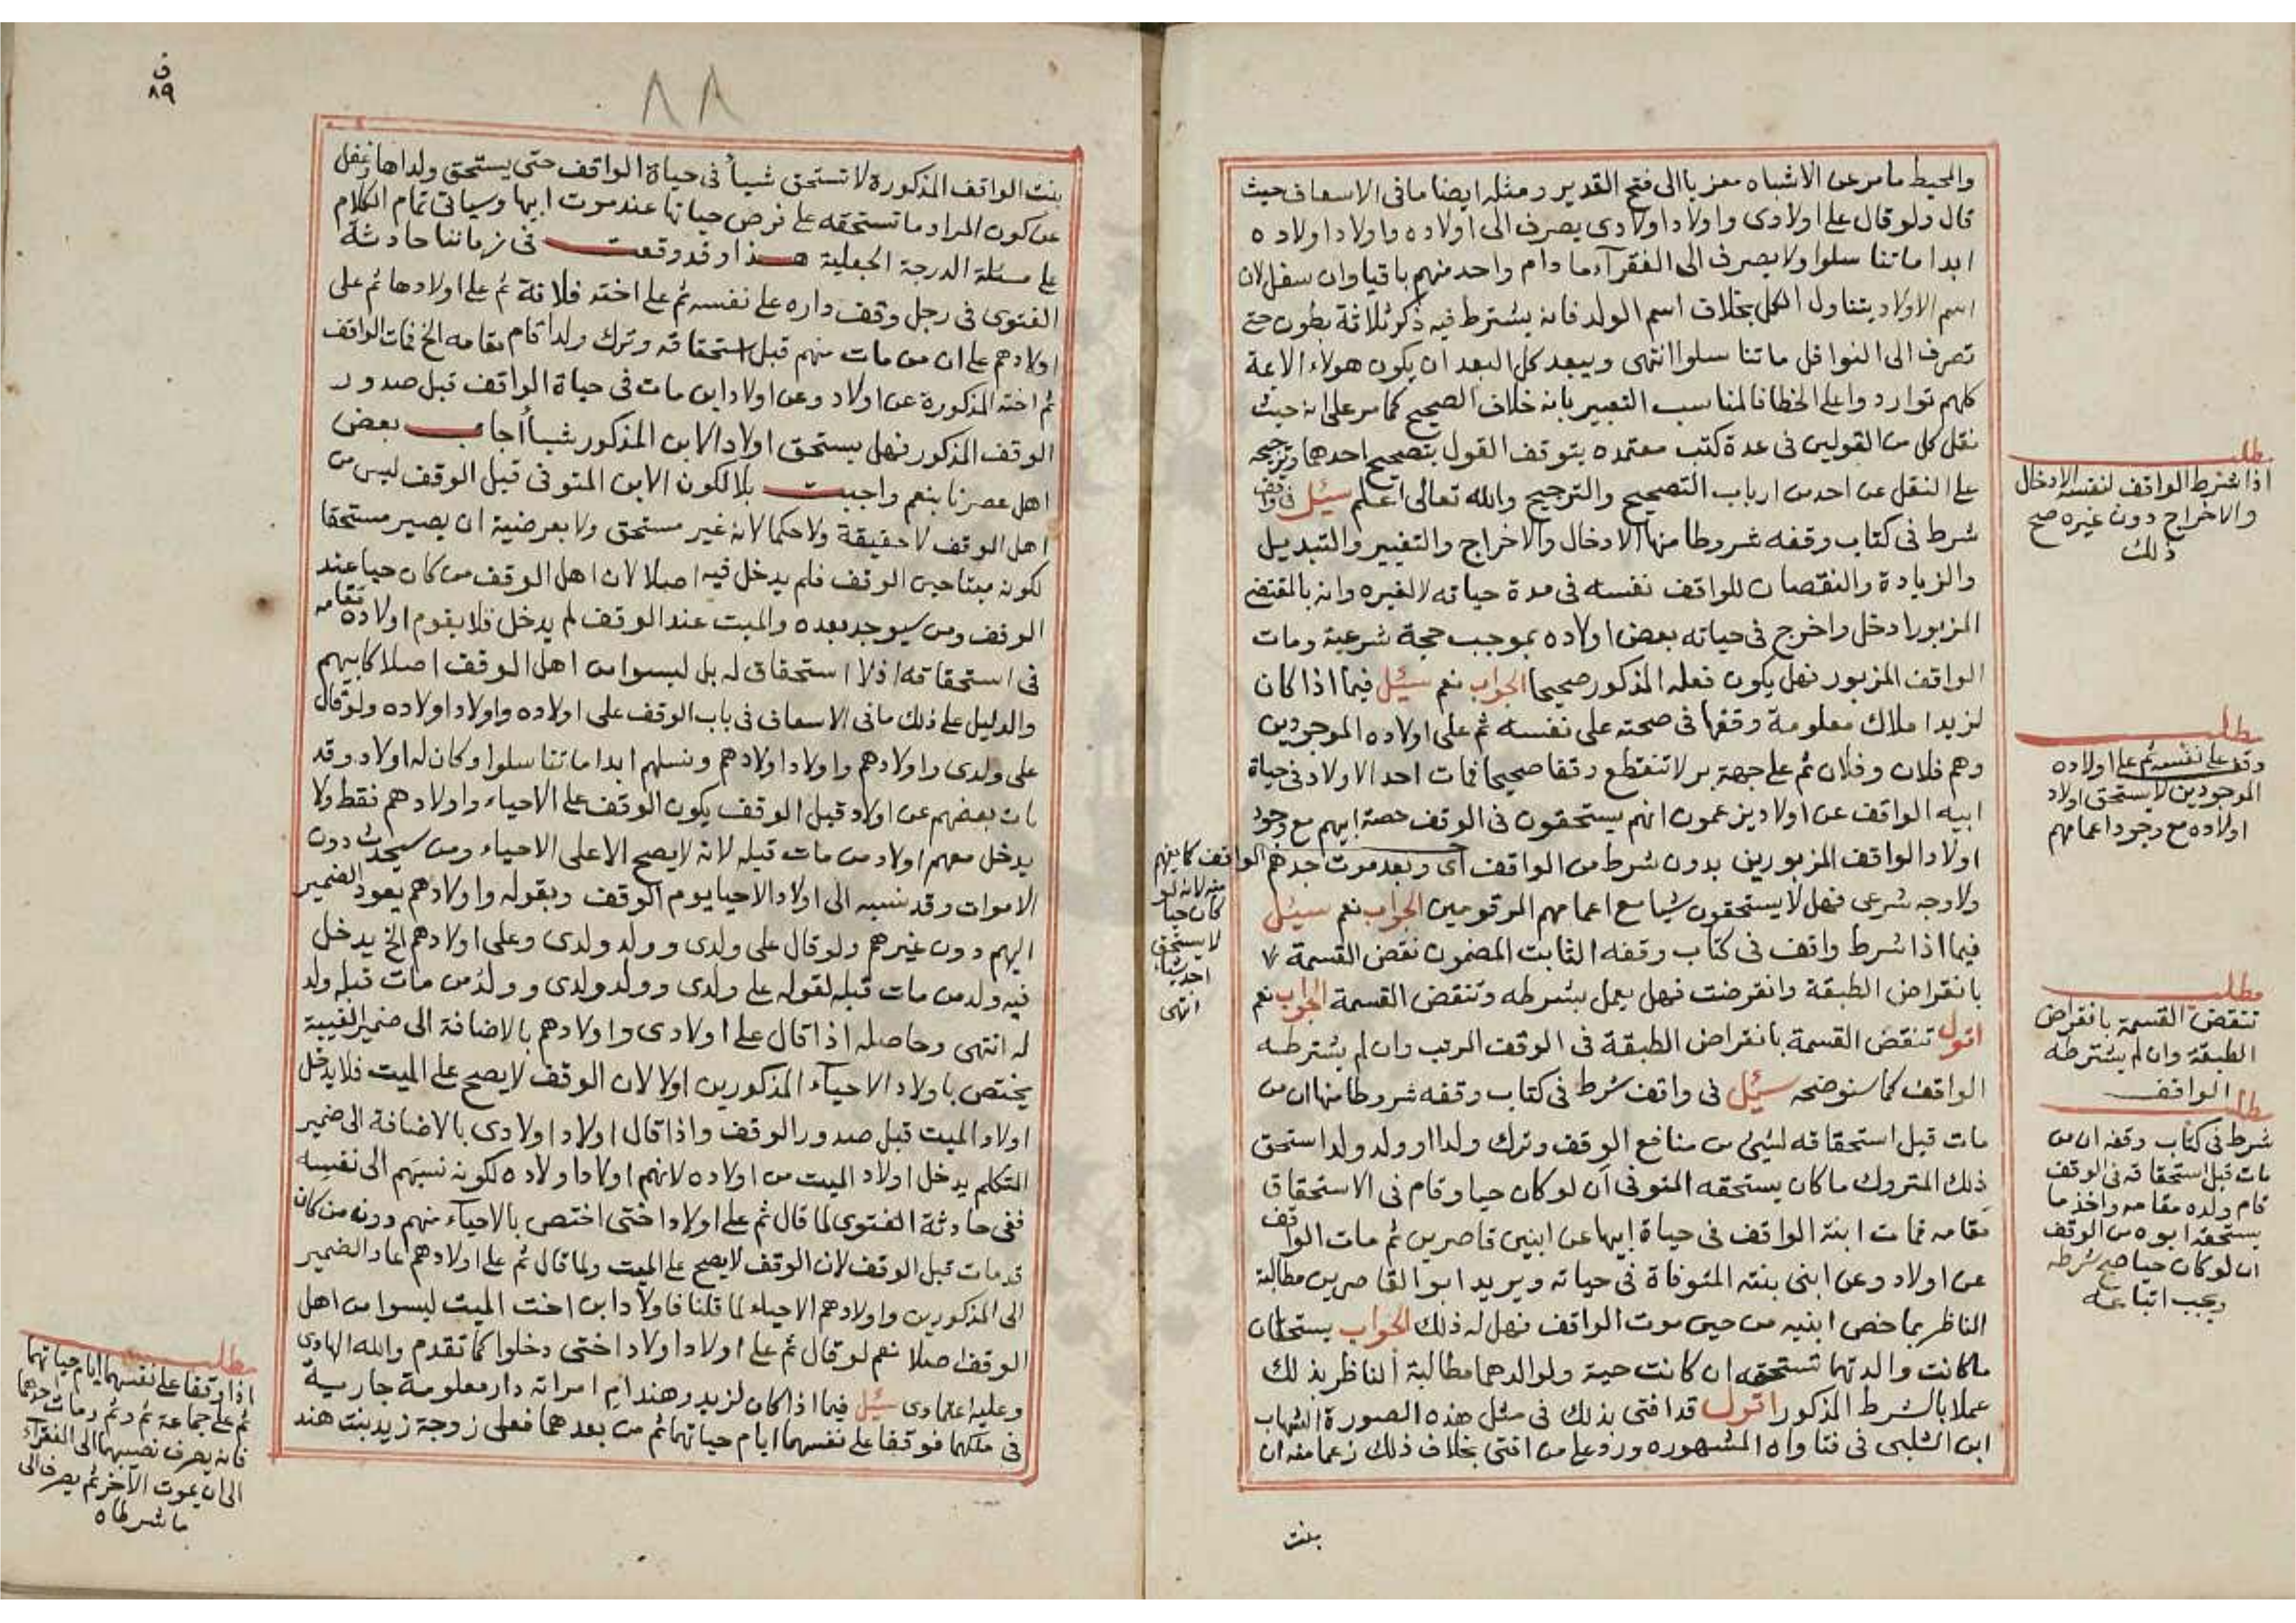 والمحيط ما مر عن الاشباه معزيا الى فتح القدير ومثله ايضا ما فى الاسعاف حيث
قال ولو قال على اولادى واولاد اولادى يصرف الى اولاده واولاد اولاده
ابدا ما تناسلوا ولا يصرف الى الفقرآء ما دام واحد منهم باقيا وان سفل لان
اسم الاولاد يتناول الكل بخلاف اسم الولد فانه يشترط فيه ذكر ثلاثة بطون حتى
تصرف الى النوافل ما تناسلوا انتهى ويبعد كل البعد ان يكون هولاء الائمة
كلهم تواردوا على الخطا فالمناسب التعبير بانه خلاف الصحيح كما مر على انه حيث
نقل كل من القولين فى عدة كتب معتمده يتوقف القول بتصحيح احدهما وترجيحه
على النقل عن احد من ارباب التصحيح والترجيح والله تعالى اعلم سئل فى واقف
شرط فى كتاب وقفه شروطا منها الادخال والاخراج والتغيير والتبديل
والزيادة والنقصان للواقف نفسه فى مدة حياته لا لغيره وانه بالمقتضى
المزبور ادخل واخرج فى حياته بعض اولاده بموجب حجة شرعية ومات
الواقف المزبور فهل يكون فعله المذكور صحيحا الجواب نعم سئل فيما اذا كان
لزيد املاك معلومة وقفها فى صحته على نفسه ثم على اولاده الموجودين
وهم فلان وفلان ثم على جهة بر لا تنقطع وقفا صحيحا فمات احد الاولاد فى حياة
ابيه الواقف عن اولاد يزعمون انهم يستحقون فى الوقف حصة ابيهم مع وجود
اولاد الواقف المزبورين بدون شرط من الواقف اى وبعد موت جدهم الواقف كابيهم
منه لانه لو
كان حيا
لا يستحق
احد شيأ
انتهى
ولا وجه شرعى فهل لا يستحقون شيا مع اعمامهم المرقومين الجواب نعم سئل
فيما اذا شرط واقف فى كتاب وقفه الثابت المضمون نقض القسمة
بانقراض الطبقة وانقرضت فهل يعمل بشرطه وتنقض القسمة الجواب نعم
اقول تنقض القسمة بانقراض الطبقة فى الوقف المرتب وان لم يشترطه
الواقف كما سنوضحه سئل فى واقف شرط فى كتاب وقفه شروطا منها ان من
مات قبل استحقاقه لشئ من منافع الوقف وترك ولدا او ولد ولد استحق
ذلك المتروك ما كان يستحقه المتوفى ان لو كان حيا وقام فى الاستحقاق
مقامه فماتت ابنة الواقف فى حياة ابيها عن ابنين قاصرين ثم مات الواقف
عن اولاد وعن ابنى بنته المتوفاة فى حياته ويريد ابو القاصرين مطالبة
الناظر بما خص ابنيه من حين موت الواقف فهل له ذلك الجواب يستحقان
ما كانت والدتهما تستحقه ان كانت حية ولوالدهما مطالبة الناظر بذلك
عملا بالشرط المذكور اقول قد افتى بذلك فى مثل هذه الصورة الشهاب
ابن الشلبى فى فتاواه المشهوره ورد على من افتى بخلاف ذلك زعما منه ان
بنت
مطلب
اذا شرط الواقف لنفسه الادخال
والاخراج دون غيره صح
ذلك
مطلب
وقف على نفسه ثم على اولاده
الموجودين لا يستحق اولاد
اولاده مع وجود اعمامهم
مطلب
تنتقض القسمة بانقراض
الطبقة وان لم يشترطه
الواقف
مطلب
شرط فى كتاب وقفه ان من
مات قبل استحقاقه فى الوقف
قام ولده مقامه واخذ ما
يستحقه ابوه من الوقف
ان لو كان حيا صح شرطه
ويجب اتباعه
ق
٨٩
٨٨
بنت الواقف المذكورة لا تستحق شيأ فى حياة الواقف حتى يستحق ولداها وغفل
عن كون المراد ما تستحقه على فرض حياتها عند موت ابيها وسياتى تمام الكلام
على مسئلة الدرجة الجعلية هذا وقد وقعت فى زماننا حادثة
الفتوى فى رجل وقف داره على نفسه ثم على اخته فلانة ثم على اولادها ثم على
اولادهم على ان من مات منهم قبل استحقاقه وترك ولدا قام مقامه الخ فمات الواقف
ثم اخته المذكورة عن اولاد وعن اولاد ابن مات فى حياة الواقف قبل صدور
الوقف المذكور فهل يستحق اولاد الابن المذكور شيأ اجاب بعض
اهل عصرنا بنعم واجبت بلا لكون الابن المتوفى قبل الوقف ليس من
اهل الوقف لا حقيقة ولا حكما لانه غير مستحق ولا بعرضية ان يصير مستحقا
لكونه ميتا حين الوقف فلم يدخل فيه اصلا لان اهل الوقف من كان حيا عند
الوقف ومن سيوجد بعده والميت عند الوقف لم يدخل فلا يقوم اولاده مقامه
فى استحقاقه اذ لا استحقاق له بل ليسوا من اهل الوقف اصلا كابيهم
والدليل على ذلك ما فى الاسعاف فى باب الوقف على اولاده واولاد اولاده ولو قال
على ولدى واولادهم واولاد اولادهم ونسلهم ابدا ما تناسلوا وكان له اولاد وقد
مات بعضهم عن اولاد قبل الوقف يكون الوقف على الاحياء واولادهم فقط ولا
يدخل معهم اولاد من مات قبله لانه لا يصح الا على الاحياء ومن سيحدث دون
الاموات وقد نسبه الى اولاد الاحيا يوم الوقف وبقوله واولادهم يعود الضمير
اليهم دون غيرهم ولو قال على ولدى وولد ولدى وعلى اولادهم الخ يدخل
فيه ولد من مات قبله لقوله على ولدى وولد ولدى وولد من مات قبله ولد
له انتهى وحاصله اذا قال على اولادى واولادهم بالاضافة الى ضمير الغيبة
يختص باولاد الاحيآء المذكورين اولا لان الوقف لا يصح على الميت فلا يدخل
اولاد الميت قبل صدور الوقف واذا قال اولاد اولادى بالاضافة الى ضمير
المتكلم يدخل اولاد الميت من اولاده لانهم اولاد اولاده لكونه نسبهم الى نفسه
ففى حادثة الفتوى لما قال ثم على اولاد اختى اختص بالاحيآء منهم دون من كان
قد مات قبل الوقف لان الوقف لا يصح على الميت ولما قال ثم على اولادهم عاد الضمير
الى المذكورين واولادهم الاحياء لما قلنا فاولاد ابن اخت الميت ليسوا من اهل
الوقف اصلا نعم لو قال ثم على اولاد اولاد اختى دخلوا كما تقدم والله الهادى
وعليه اعتمادى سئل فيما اذا كان لزيد وهند ام امراته دار معلومة جارية
فى ملكهما فوقفا على نفسهما ايام حياتهما ثم من بعدهما فعلى زوجة زيد بنت هند
مطلب
اذا وقفا على نفسهما ايام حياتهما
ثم على جماعة ثم وثم ومات احدهما
فانه يصرف نصيبهما الى الفقرآء
الى ان يموت الآخر ثم يصرف الى
ما شرطاه